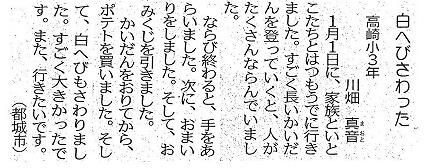 白へびさわった
高崎小3年
川畑 真音
まおと
1月1日に、家族といと
こたちとはつもうでに行き
ました。すごく長いかいだ
んを登っていくと、人が
たくさんならんでいまし
た。
ならび終わると、手をあ
らいました。次に、おまい
りをしました。そして、お
みくじを引きました。
かいだんをおりてから、
ポテトを買いました。そし
て、白へびもさわりまし
た。すごく大きかったで
す。また、行きたいです。
(都城市)